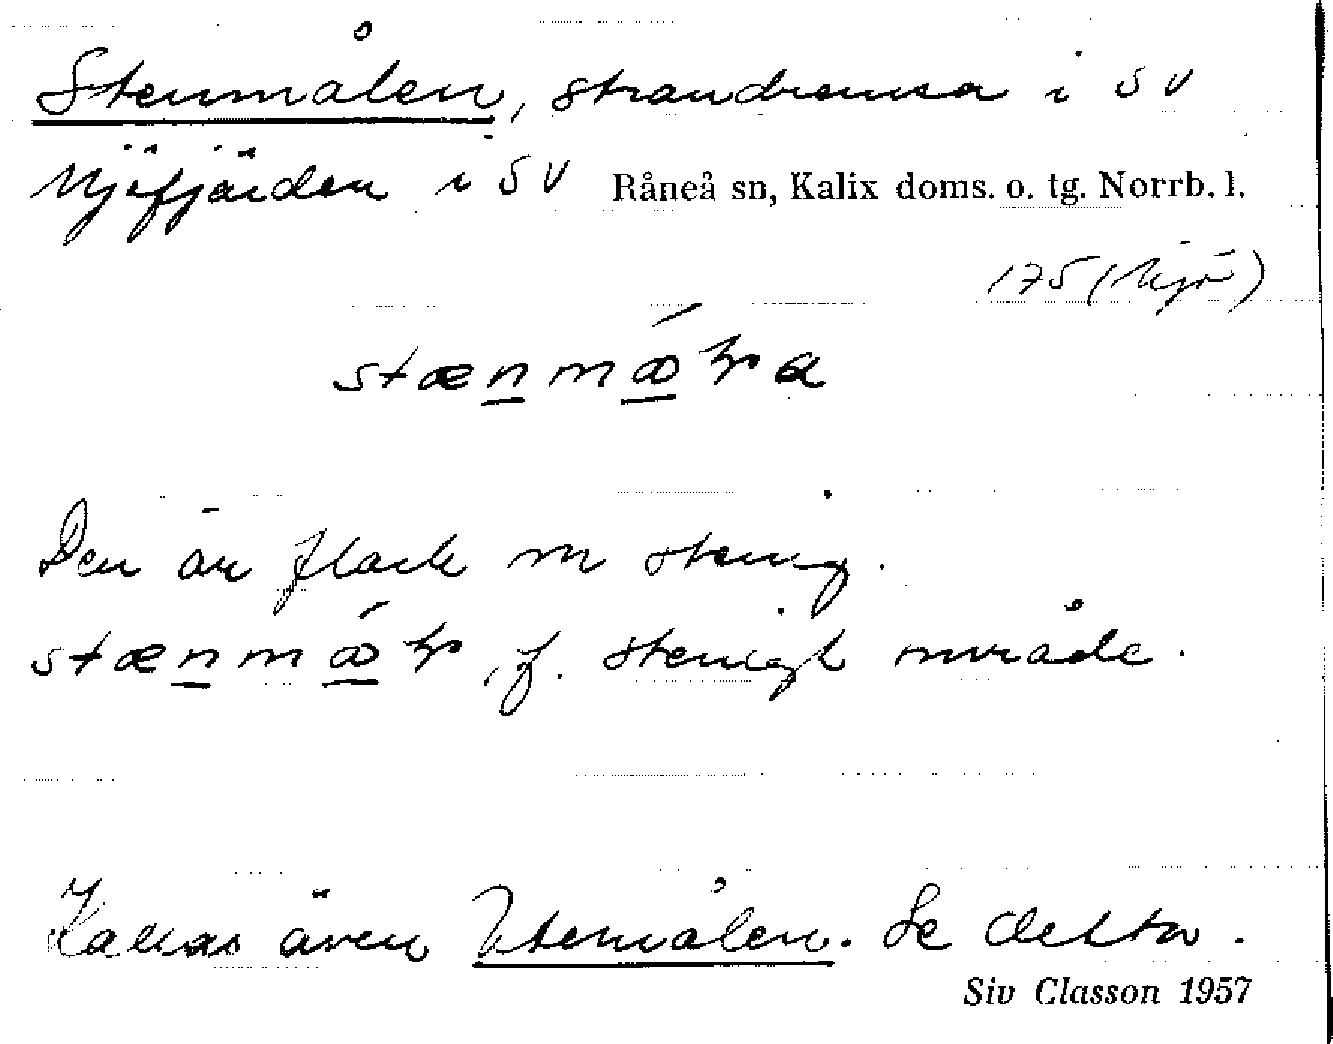 Stenmålen, strandremsa i SV
Njöfjärden i SV Råneå sn, Kalix doms. o. tg. Norrb. l.
175 (Njö)
Den är flack m stenig.
f. stenigt område.
Kallas även Utemålen. Se detta.
Siv Classon 1957